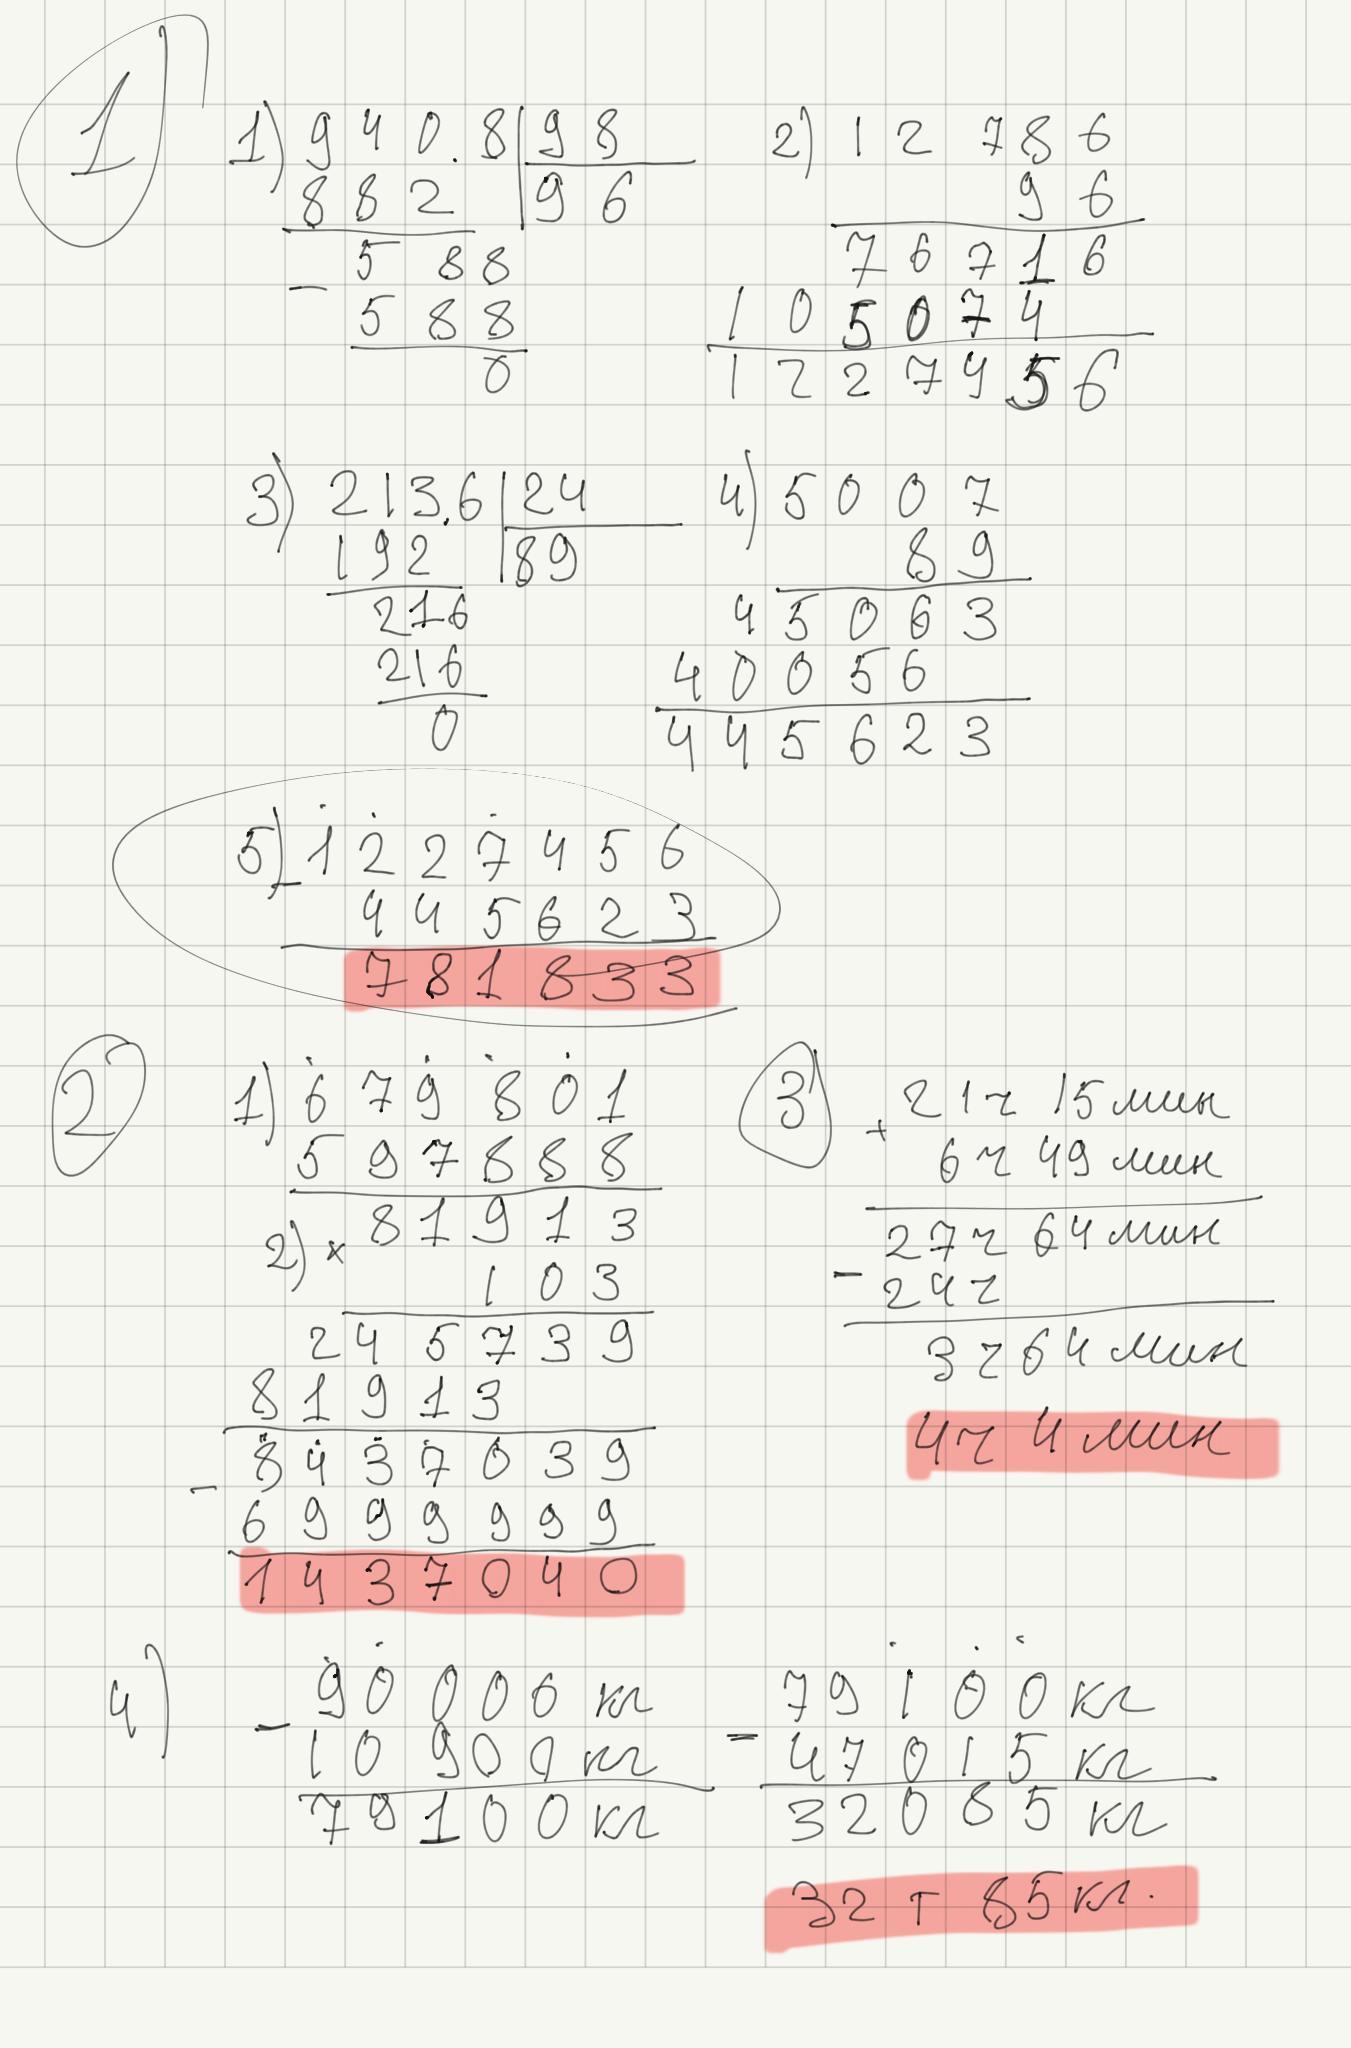 1
1) 940.8 98
882 96
588
- 588
0
2) 12786
96
76716
105074
1227456
3) 213.6 24
192 89
216
216
0
4) 5007
89
45063
40056
445623
5) - 1227456
445623
781833
2
1) 679801
597888
81913
2) × 103
245739
81913
8437039
- 6999999
1437040
3
+ 21ч 15 мин
6ч 49 мин
27ч 64 мин
- 24ч
3ч 64 мин
4ч 4 мин
4)
- 90000 кг
10900 кг
79100 кг
- 79100 кг
47015 кг
32085 кг
32 т 85 кг.